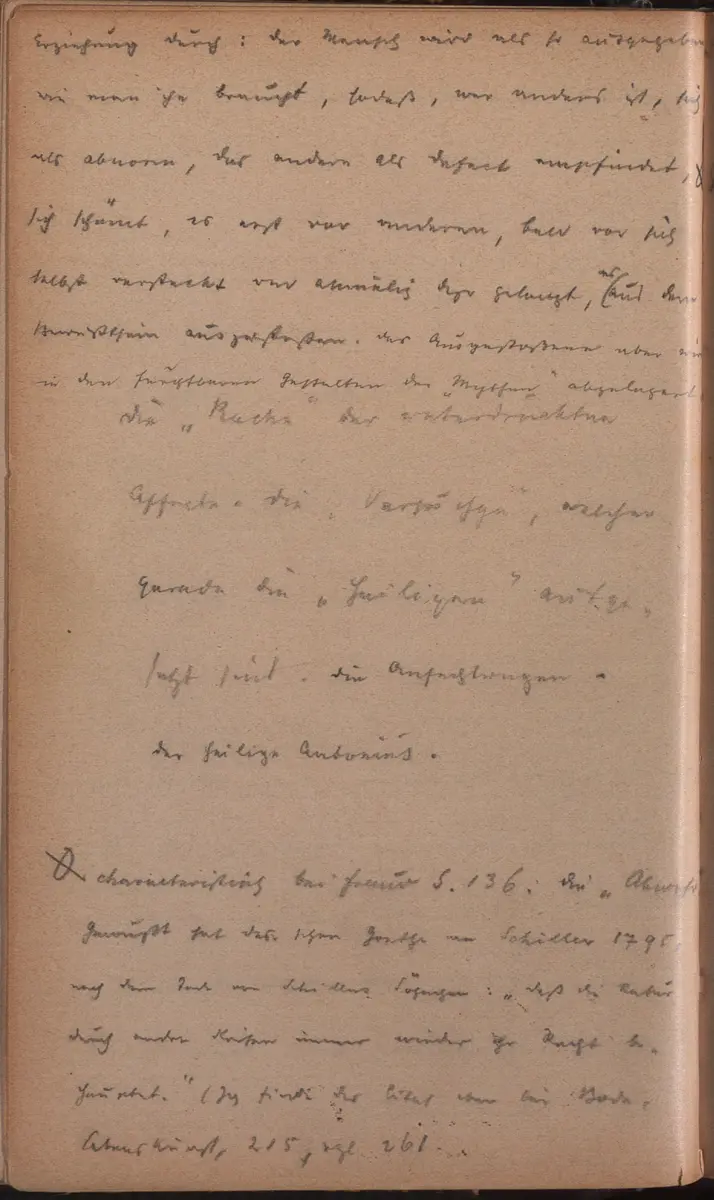 Erziehung durch: der Mensch wird als so ausgegeben
wie man ihn braucht, sodaß, wer anders ist, sich
als abnorm, das andere als defect empfindet,
sich schämt, es erst vor anderen, bald vor sich
selbst versteckt und allmälig dazu gelangt, es aus dem
Bewußtsein auszustoßen. Das Ausgestoßene aber wird
in den furchtbaren Gestalten der „Mythen“ abgelagert
die „Rache“ der unterdrückten
Affecte. die „Versuchge“, welcher
gerade die „Heiligen“ ausge-
setzt sind. die Anfechtungen.
der heilige Antonius.
characteristisch bei Freud S. 136: die „Abwehr
Gewußt hat das schon Goethe an Schiller 1795,
nach dem Tode von Schillers : „daß die Natur
durch andre immer wieder ihr Recht be-
hauptet.“ (Ich finde das Citat eben bei Bode,
Lebenskunst, 215, vgl 261.